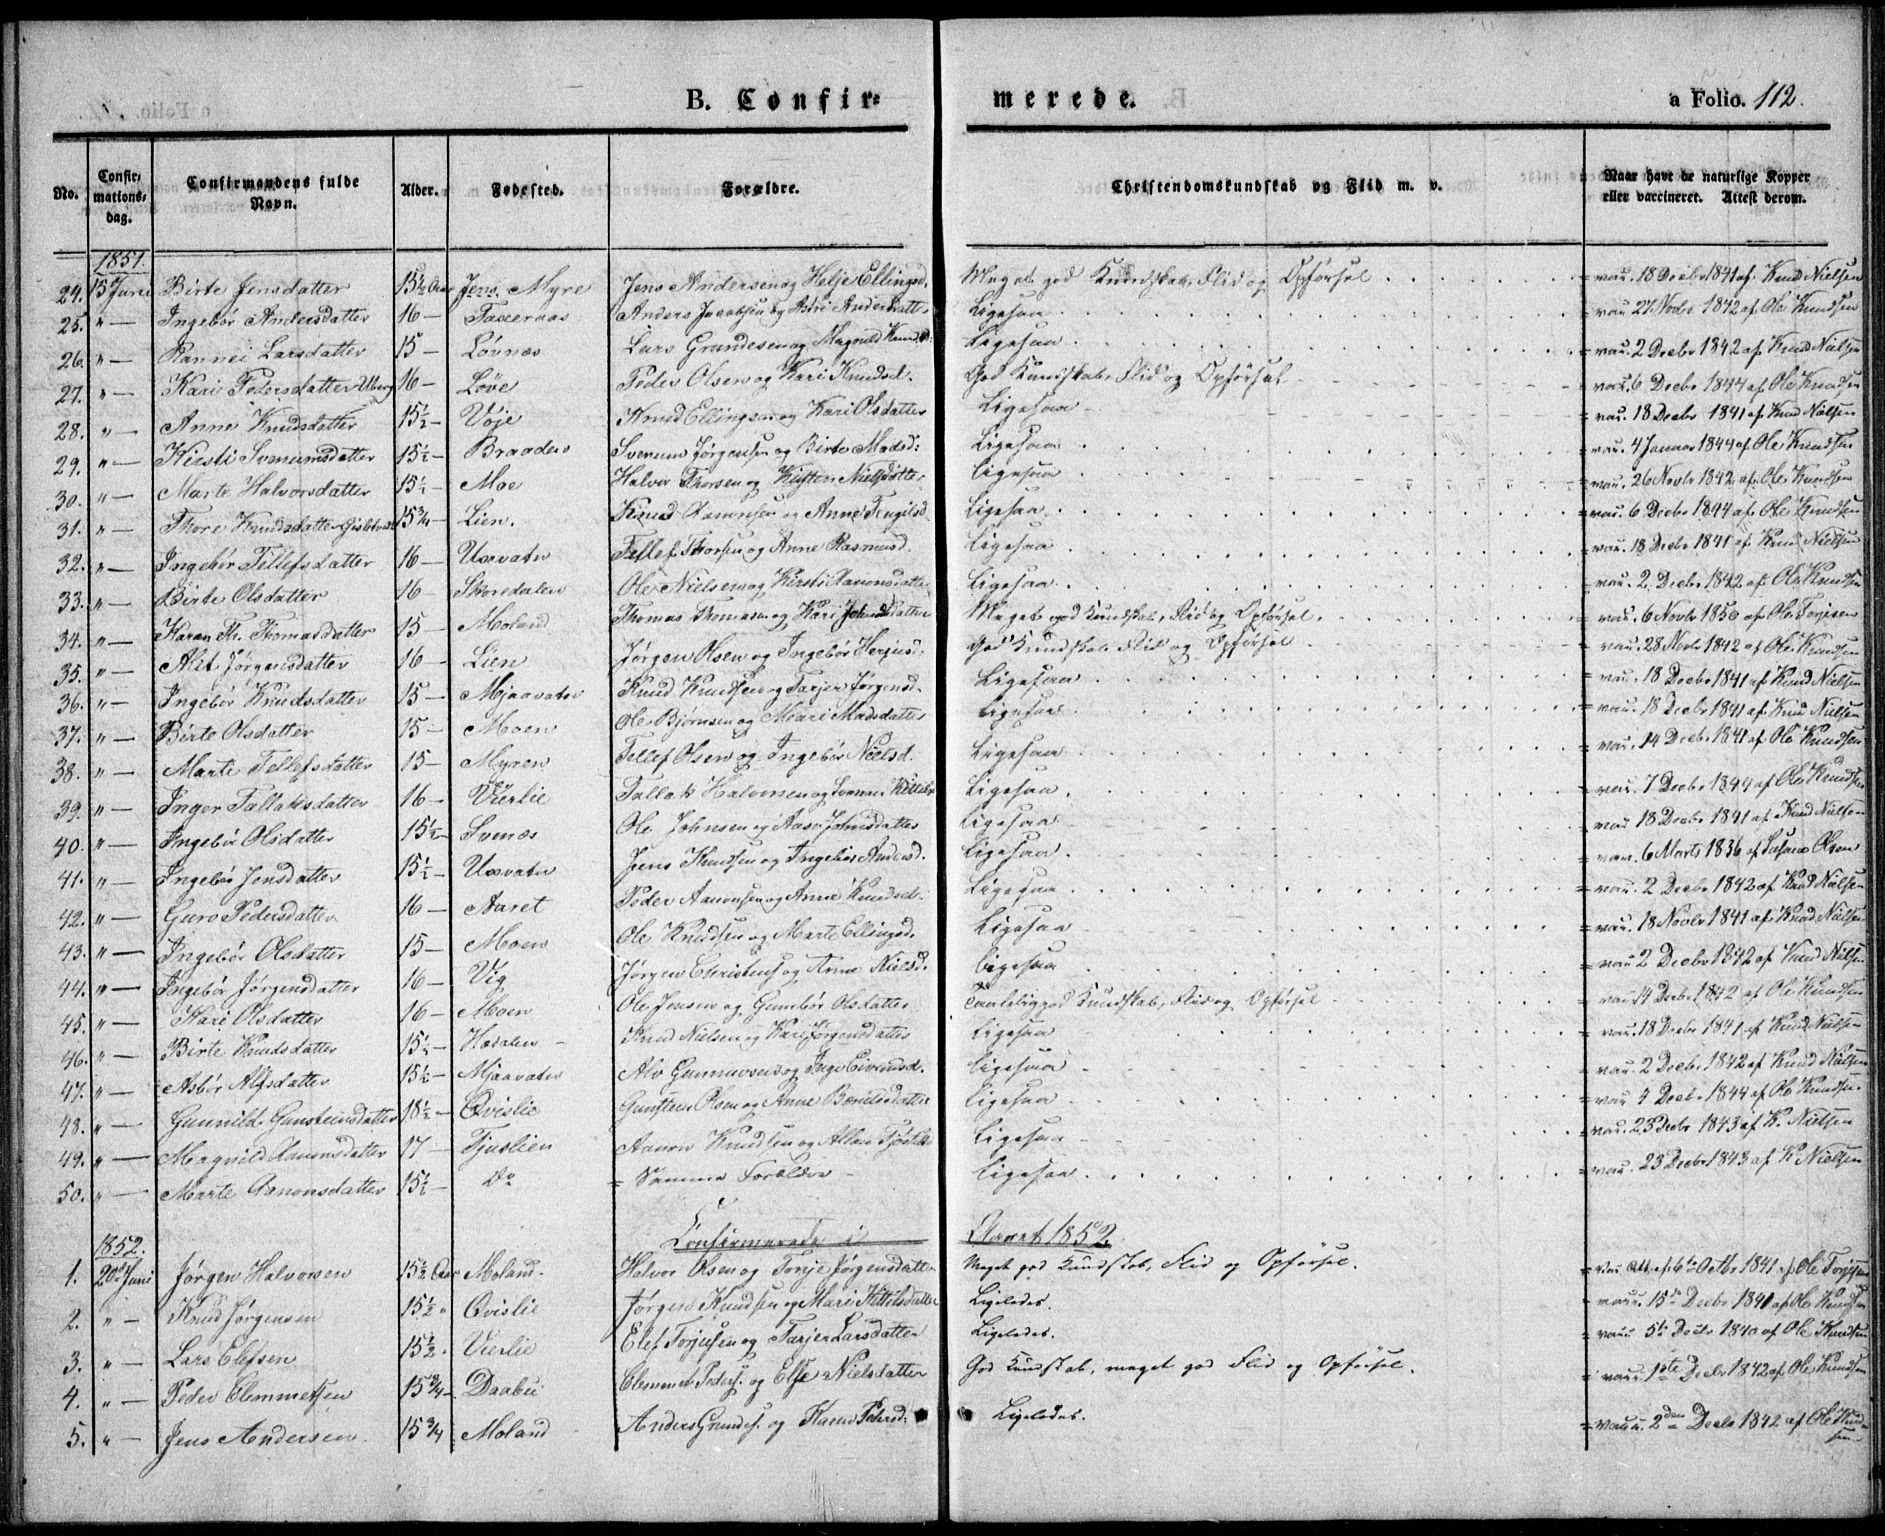 B. Confir= merede. a Folio. 112.
No. Confir= mations= dag. Confirmandens fulde Navn. Alder. Fødested. Forældre. Christendomskundskab og Flid m. v. Naar havt de naturlige Kopper eller vaccineret. Attest derom.
1851.
24. 15 Juni Birte Jensdatter 15½ Aar Jens. Myre Jens Andersen og Helje Ellingsd. Meget god Kundskab, Flid og Opførsel = vau. 18 Decbr 1841 af Knud Nielsen
25. " — Ingebor Andersdatter 16 — Anders Jacobsen og Asbri Andersdatter Ligesaa = vau 27 Novbr 1842 af Ole Knudsen
26. " — Rannei Larsdatter 15 — Løvnæs Lars Grundesen og Magnild Knudsd: Ligesaa = vau. 2 Decbr 1842 af Knud Nielsen
27. " — Kari Pedersdatter 16 — Løve Peder Olsen og Kari Knudsd. God Kundskab, Flid og Opførsel = vau. 6 Decbr 1844 af Ole Knudsen
28. " — Anne Knudsdatter 15½ — Voje Knud Ellingsen og Kari Olsdatter Ligesaa = vau. 18 Decbr 1841 af Knud Nielsen
29. " — Kirsti Svenumsdatter 15½ — Braaden Svenum Jørgensen og Birte Madsd: Ligesaa = vau. 4 Januar 1844 af Ole Knudsen
30. " — Marte Halvorsdatter 15½ — Moe Halvor Thorsen og Kirsten Nielsdatter Ligesaa = vau. 26 Novbr 1842 af Ole Knudsen
31. " — Thore Knudsdatter 15¾ — Lien. Knud Aanonsen og Anne Ligesaa = vau. 6 Decbr 1844 af Ole Knudsen
32. " — Ingebor Tellefsdatter 16 — Uxvatn Tellef Thorsen og Anne Rasmusd. Ligesaa = vau. 18 Decbr 1841 af Knud Nielsen
33. " — Birte Olsdatter 16 — Skoredalen Ole Nielsen og Kirsti Aanonsdatter Ligesaa = vau. 2 Decbr 1842 af Ole Knudsen
34. " — Karen Th. Thomasdatter 15 — Moland Thomas Thomasen og Kari Johnsdatter Meget god Kundskab, Flid og Opførsel. = vau. 6 Novbr 1850 af Ole Torjesen
35. " — Alet Jørgensdatter 16 — Lien Jørgen Olsen og Ingebor Herjusd: God Kundskab, Flid og Opførsel = vau. 28 Novbr 1842 af Ole Knudsen
36. " — Ingebor Knudsdatter 15 — Mjaavatn Knud Knudsen og Tarjer Jørgensd. Ligesaa = vau. 18 Decbr 1841 af Knud Nielsen
37. " — Birte Olsdatter 15 — Moen Ole Bjørnsen og Mari Madsdatter Ligesaa = vau. 18 Decbr 1841 af Knud Nielsen
38. " — Marte Tellefsdatter 15 — Myren Tellef Olsen og Ingebor Nielsd. Ligesaa = vau. 14 Decbr 1841 af Ole Knudsen
39. " — Inger Tallaksdatter 16 — Vierlie Tallak Halvorsen og Ligesaa = vau. 7 Decbr 1844 af Ole Knudsen
40. " — Ingebor Olsdatter 15½ — Svenæs Ole Johnsen og Aase Johnsdatter Ligesaa = vau 18 Decbr 1841 af Knud Nielsen
41. " — Ingebor Jensdatter 15½ — Uxvatn Jens Knudsen og Ingebor Andersd. Ligesaa = vau. 6 Marts 1836 af Olsen
42. " — Guro Pedersdatter 16 — Aaret Peder Aanonsen og Anne Knudsd. Ligesaa = vau. 2 Decbr 1842 af Knud Nielsen
43. " — Ingebor Olsdatter 15 — Moen Ole Knudsen og Marte Ellingsd. Ligesaa = vau. 18 Novbr 1841 af Knud Nielsen
44. " — Ingebor Jørgensdatter 16 — Vig Jørgen Christens og Anne Nielsd. Ligesaa = vau. 2 Decbr 1842 af Knud Nielsen
45. " — Kari Olsdatter 16 — Moen Ole Jensen og Gunbor Olsdatter Taalelig god Kundskab, Flid og Opførsel = vau. 14 Decbr 1842 af Ole Knudsen
46. " — Birte Knudsdatter 15½ — Hasalen Knud Nielsen og Kari Jørgensdatter Ligesaa = vau. 18 Decbr 1841 af Knud Nielsen
47. " — Asbør Alfsdatter 15½ — Mjaavatn Alv Gunnarsen og Inge Eivindsd. Ligesaa = vau 2 Decbr 1842 af Knud Nielsen
48. " — Gunnild Gunsteinsdatter 18½ — Qvislie Gunsten Olsen og Anne Ligesaa = vau 4 Decbr 1844 af Ole Knudsen
49. " — Magnild Aanonsdatter 17 — Tjuslien Aanon Knudsen og Ligesaa = vau. 23 Decbr 1843 af K. Nielsen
50. " — Marte Aanonsdatter 15½ — Do = Samme Forældre — Ligesaa = vau. 23 Decbr 1843 af K. Nielsen
1852. Confirmerede i Aaret 1852.
1. 20de Juni Jørgen Halvorsen 15½ Aar Moland. Halvor Olsen og Tonje Jørgensdatter Meget god Kundskab, Flid og Opførsel. = vau. Att. af 6te Octbr 1841 af Ole Torjesen
2. " — Knud Jørgensen 15½ " Qvislie Jørgen Knudsen og Mari Kittilsdatter Ligeledes. = vau. 15de Decbr 1841 af Ole Knudsen
3. " — Lars Elefsen 15½ " Vierlie Elef Torjusen og Tarjer Larsdatter Ligeledes. = vau. 5te Decbr 1840 af Ole Knudsen
4. " — Peder Clemmetsen 15¾ — Daabu Clemmet Peders. og Else Nielsdatter God Kundskab, meget god Flid og Opførsel. = vau. 1ste Decbr 1842 af Ole Knudsen
5. " — Jens Andersen 15¾ Moland Anders Grundes. og Karen Pedersd: Ligeledes. = vau. 2den Decbr 1842 af Ole Knud=
sen